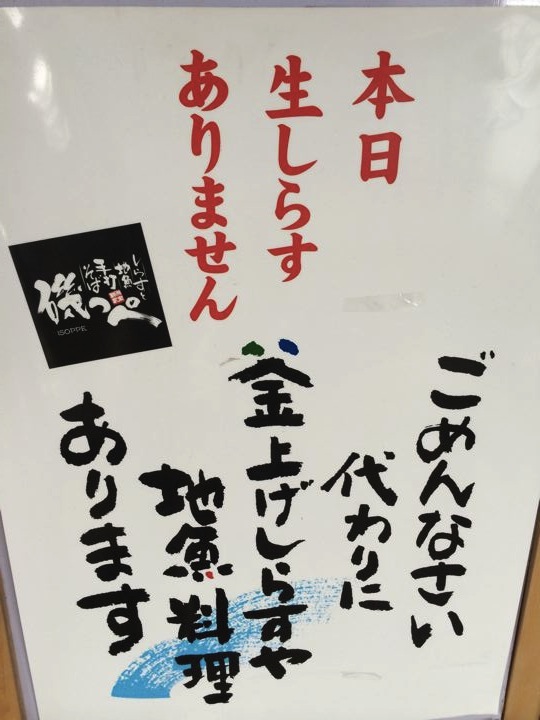 本日
生しらす
ありません
ごめんなさい
代わりに
釜上げしらすや
地魚料理
あります
しらすと
地魚
手打
そば
磯っぺ
ISOPPE